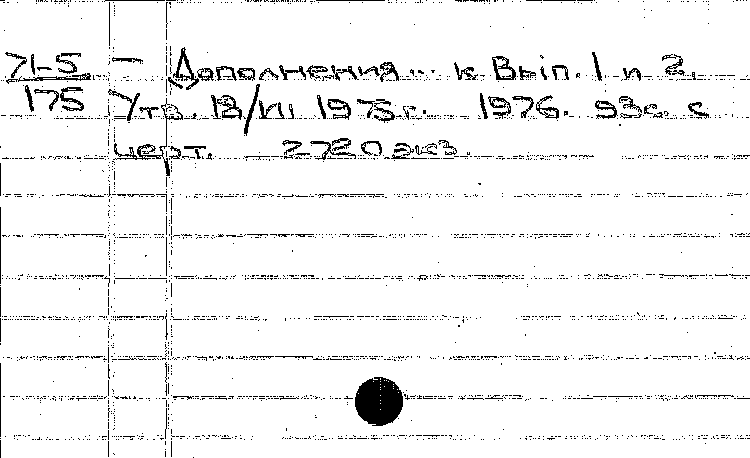 71-5 — Дополнения... к Вып. 1 и 2.
175 Утв. 18/VII 1975г. 1976. 93с. с
черт. 2720 экз.